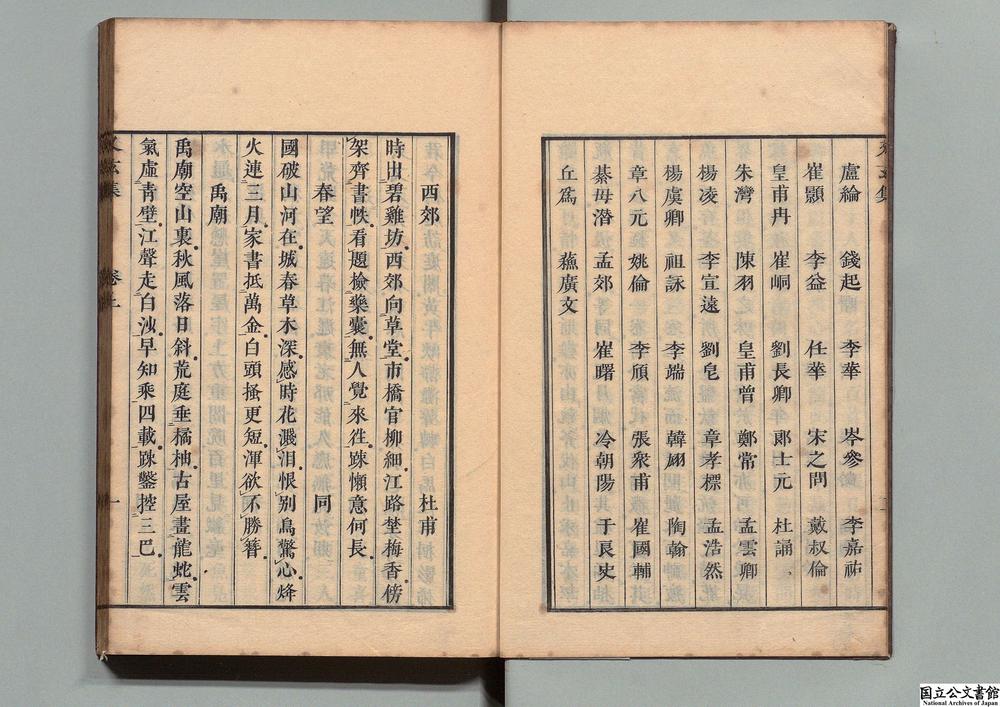 盧綸　錢起　李華　岑參　李嘉祐
崔顥　李益　任華　宋之問　戴叔倫
皇甫冉　崔峒　劉長卿　郎士元　杜誦
朱灣　陳羽　皇甫曾　鄭常　孟雲卿
楊凌　李宣遠　劉皂　章孝標　孟浩然
楊虞卿　祖詠　李端　韓翃　陶翰
章八元　姚倫　李頎　張衆甫　崔國輔
綦毋潛　孟郊　崔曙　冷朝陽　于良史
丘爲　蘓廣文
西郊　杜甫
時出碧雞坊西郊向草堂市橋官柳細江路埜梅香傍
架齊書帙看題檢藥囊無人覺來徃踈懶意何長
春望　同
國破山河在城春草木深感時花濺淚恨別鳥驚心烽
火連三月家書抵萬金白頭搔更短渾欲不勝簪
禹廟
禹廟空山裏秋風落日斜荒庭垂橘柚古屋畫龍虵雲
氣虛青壁江聲走白沙早知乘四載踈鑿控三巴
卷上
一
国立公文書館
National Archives of Japan